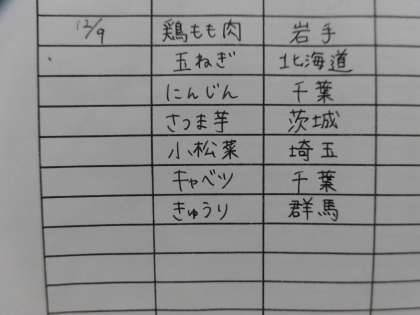 12/9 鶏もも肉 岩手
玉ねぎ 北海道
にんじん 千葉
さつま芋 茨城
小松菜 埼玉
キャベツ 千葉
きゅうり 群馬